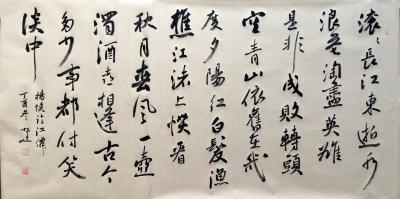 滚滚长江東逝水
浪花淘盡英雄
是非成敗轉頭
空青山依舊在幾
度夕陽紅白髮漁
樵江渚上慣看
秋月春風一壺
濁酒喜相逢古今
多少事都付笑
談中
楊慎臨江仙
丁酉冬